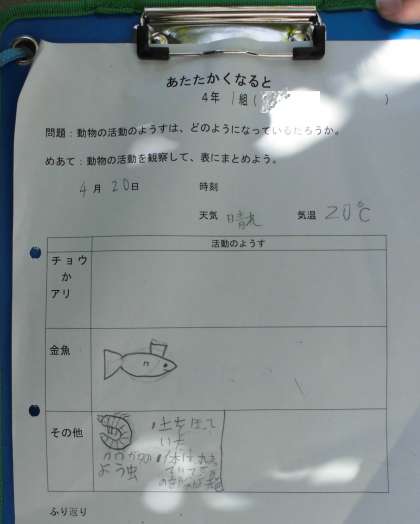 あたたかくなると
4年 1組( )
問題:動物の活動のようすは、どのようになっているだろうか。
めあて:動物の活動を観察して、表にまとめよう。
4月 20日 時刻
天気 晴れ 気温 20℃
活動のようす
チョウ
か
アリ
金魚
その他
・土をほって
いた
よう虫
・体は丸
ふり返り